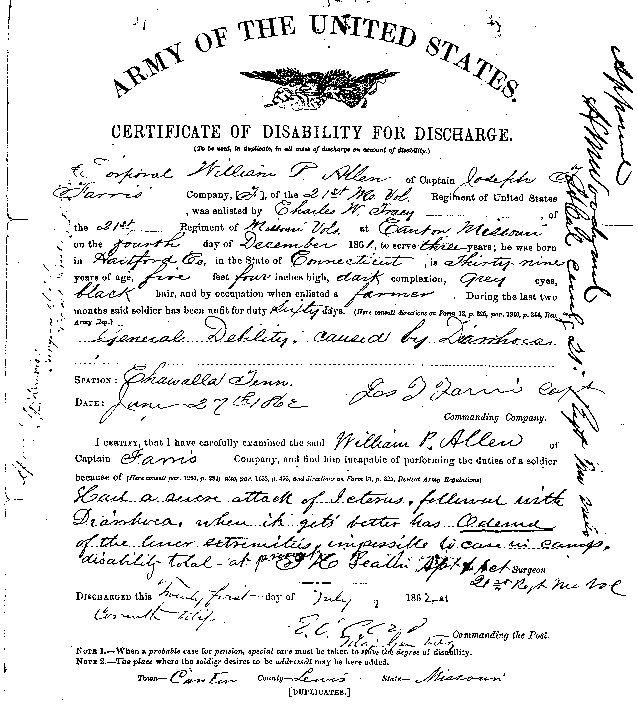 ARMY OF THE UNITED STATES.
CERTIFICATE OF DISABILITY FOR DISCHARGE.
(To be used, in duplicate, in all cases of discharge on account of disability.)
Corporal William P. Allen of Captain Joseph
Farris Company, (F), of the 21st Mo Vol. Regiment of United States
, was enlisted by Charles W. Tracy , of
the 21st Regiment of Missouri Vols. at Canton Missouri
on the fourth day of December 1861, to serve three years; he was born
in Hartford Co. in the State of Connecticut, is thirty nine
years of age, five feet four inches high, dark complexion, grey eyes,
black hair, and by occupation when enlisted a farmer. During the last two
months said soldier has been unfit for duty sixty days.
Army Reg.)
General Debility, caused by Diarrhoea
STATION: Chawalla Tenn.
DATE: June 27th 1862 Jos F Farris Capt
Commanding Company.
I CERTIFY, that I have carefully examined the said William P. Allen of
Captain Farris Company, and find him incapable of performing the duties of a soldier
because of
Had a severe attack of Icterus, followed with
Diarrhoea, when it gets better has Odema
of the lower extremities, impossible to cure in camp.
disability total at present
Surgeon
21st Regt Mo Vol
DISCHARGED this Twenty first day of July , 1862, at
Corinth
Commanding the Post.
NOTE 1.—When a probable case for pension, special care must be taken to state the degree of disability.
NOTE 2.—The place where the soldier desires to be addressed may be here added.
Town—Canton County—Lewis State—Missouri
[DUPLICATES.]
Approved